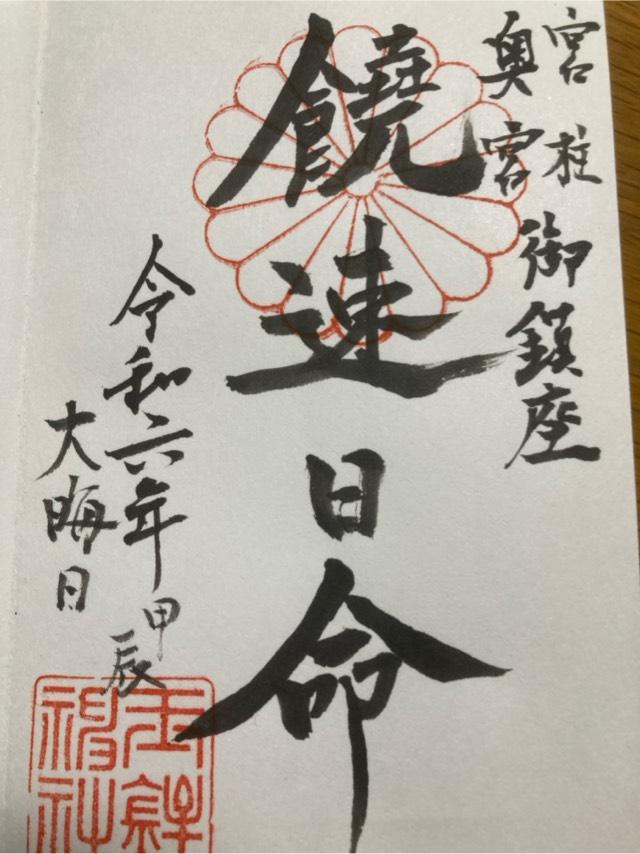 宮柱
奥宮
御鎮座
饒速日命
令和六年甲辰
大晦日
玉鉾
神社